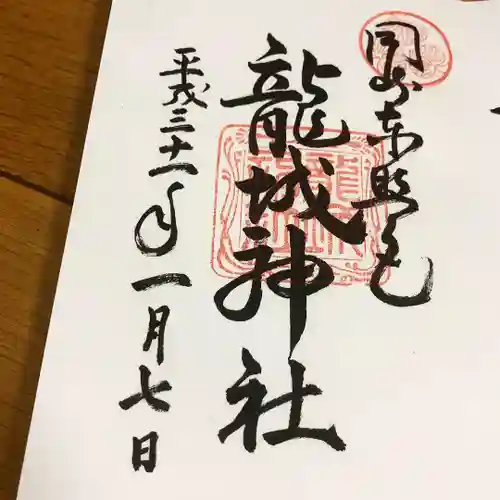 岡崎東照宮
龍城神社
平成三十一年一月七日